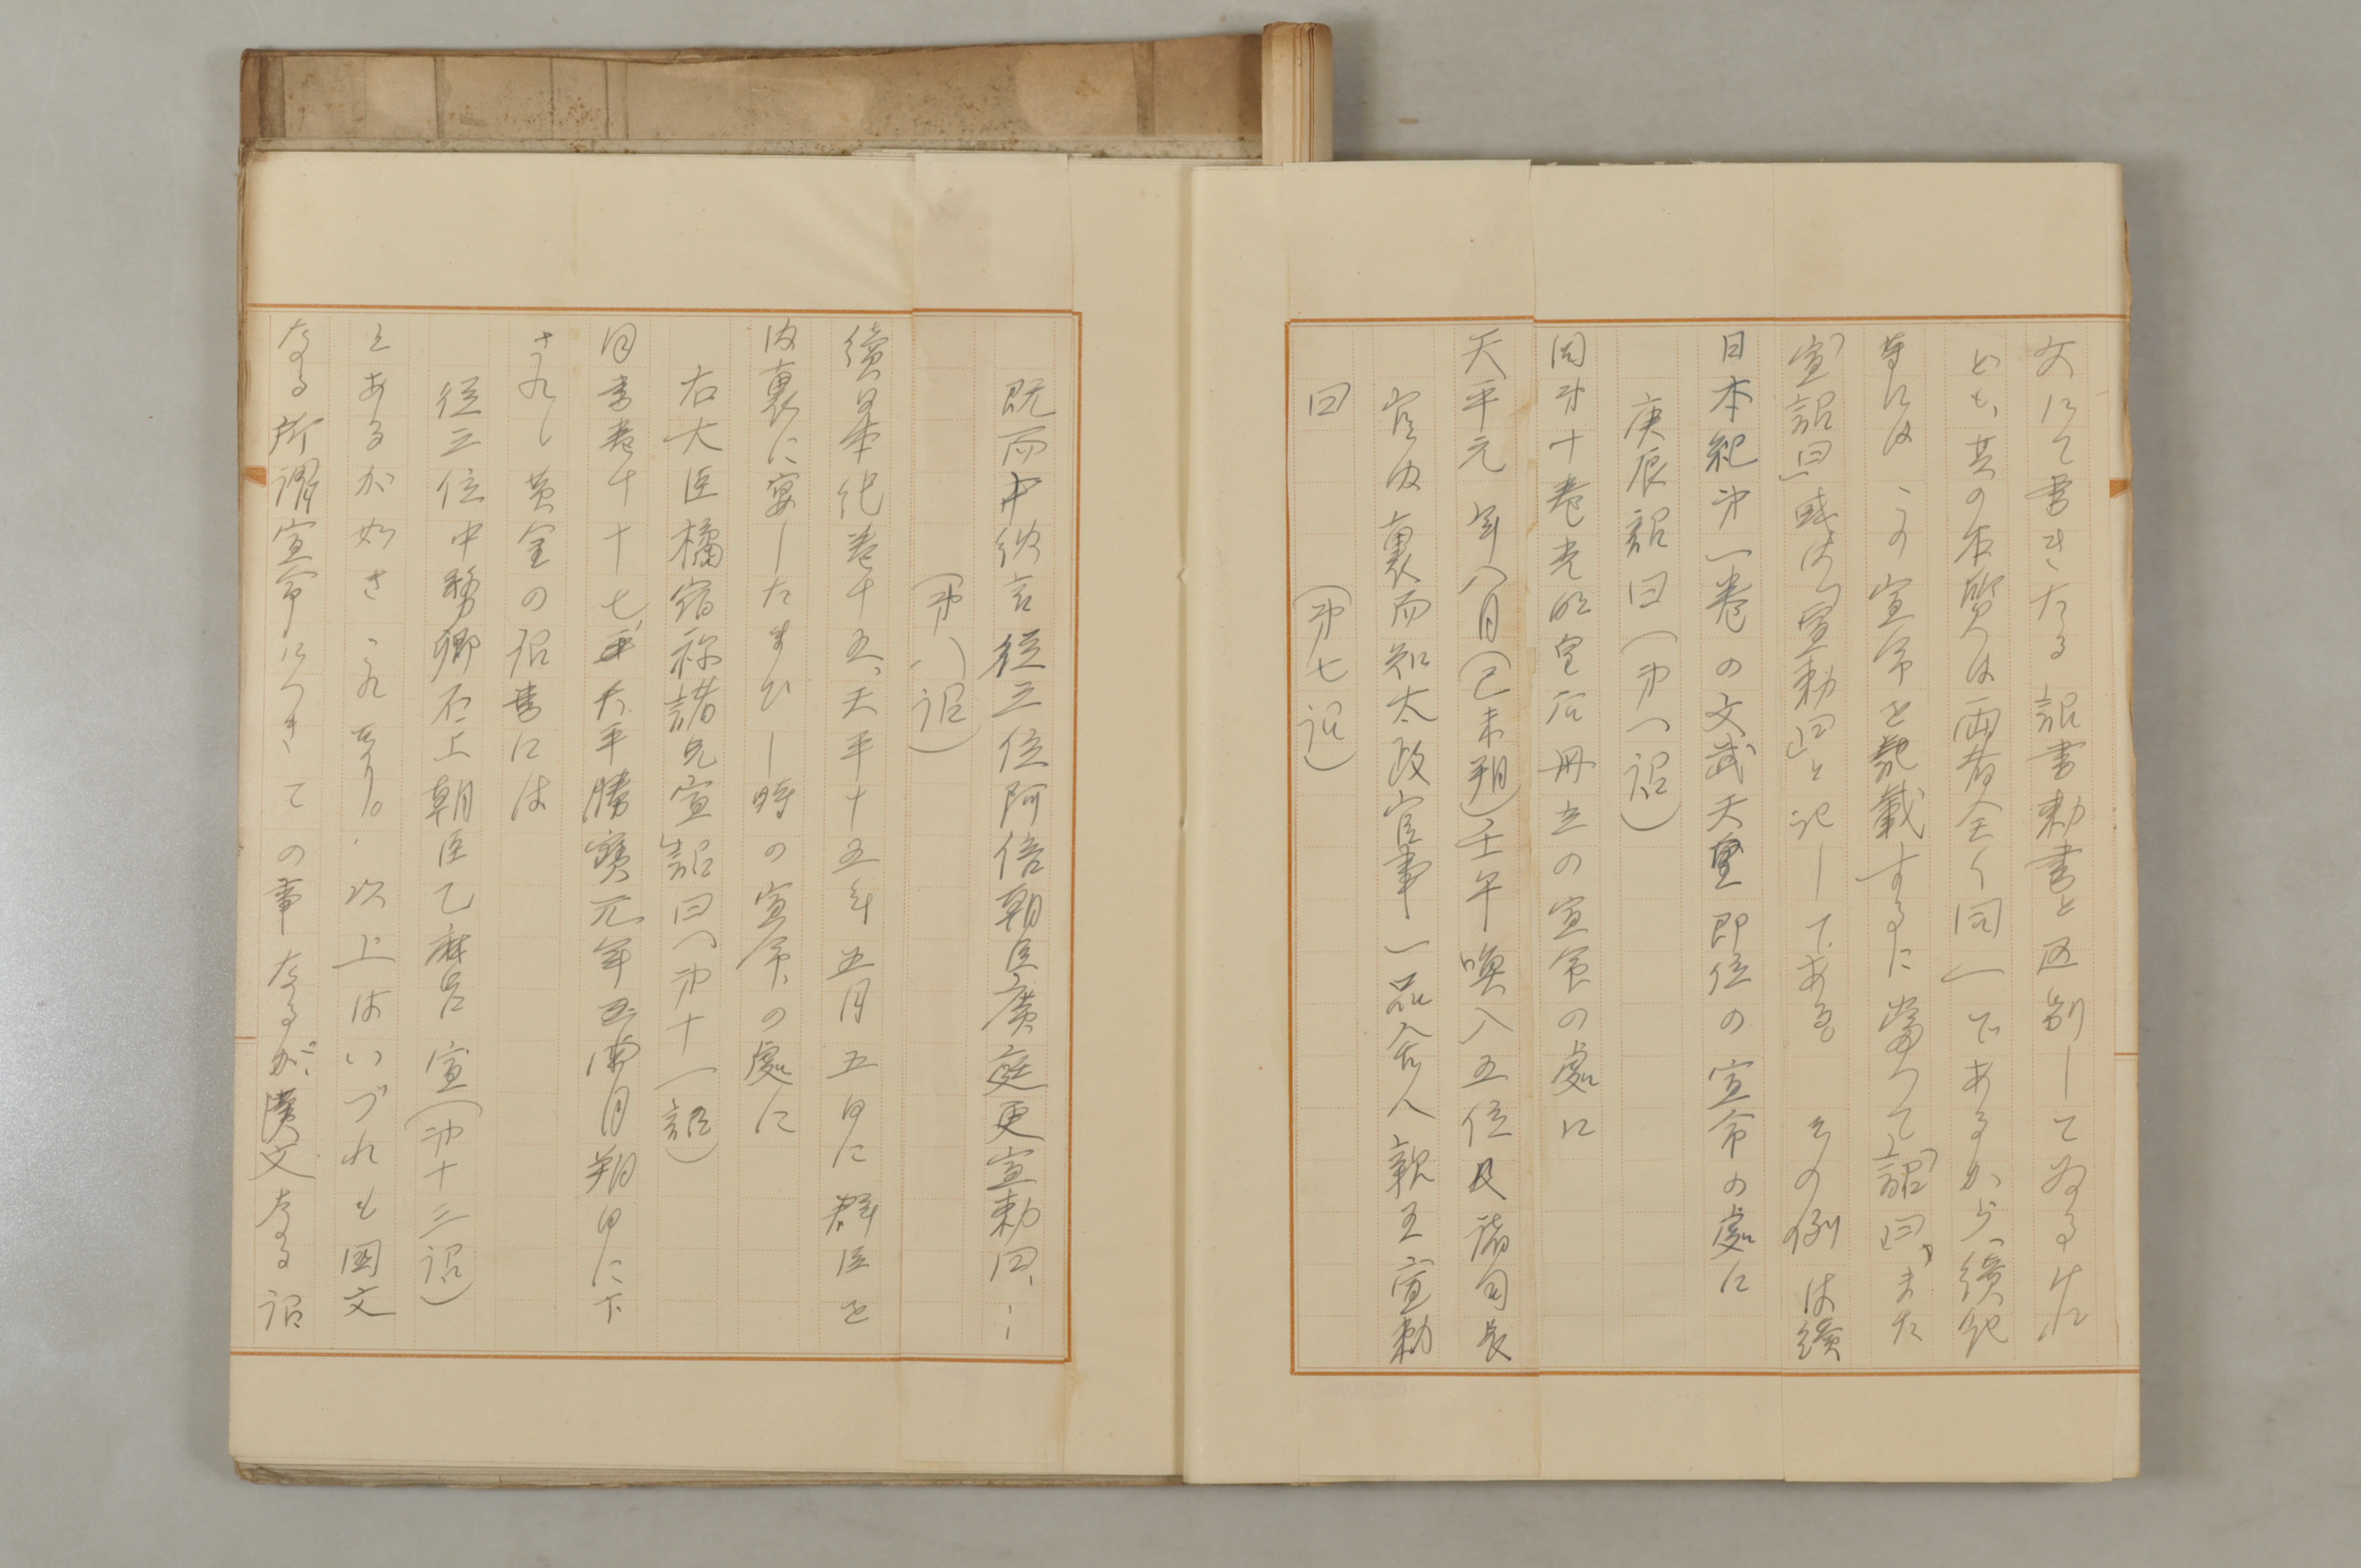 文にて書きたる詔書勅書と区別してゐるけれ
ども、其の本質は両者全く同一であるから、續紀
等にはこの宣命を載するに當つて「詔曰」また
「宣詔曰」或は「宣勅曰」と記してある。その例は續
日本紀第一巻の文武天皇即位の宣命の處に
庚辰詔曰(第一詔)
同第十巻光明皇后冊立の宣命の處に
天平元年八月(己未朔)壬午喚入五位及諸司長
官内裏而知太政官事一品舎人親王宣勅
曰(第七詔)
既而中納言従三位阿倍朝臣廣庭更宣勅曰、…
(第八詔)
續日本紀巻十五、天平十五年五月五日に群臣を
内裏に宴したまひし時の宣命の處に
右大臣橘宿祢諸兄宣詔曰(第十一詔)
同書巻十七、天平勝寶元年四月朔日に下
されし黄金の詔書には
従三位中務卿石上朝臣乙麻呂宣(第十三詔)
とあるが如きこれなり。以上はいづれも国文
なる所謂宣命につきての事なるが、漢文なる詔